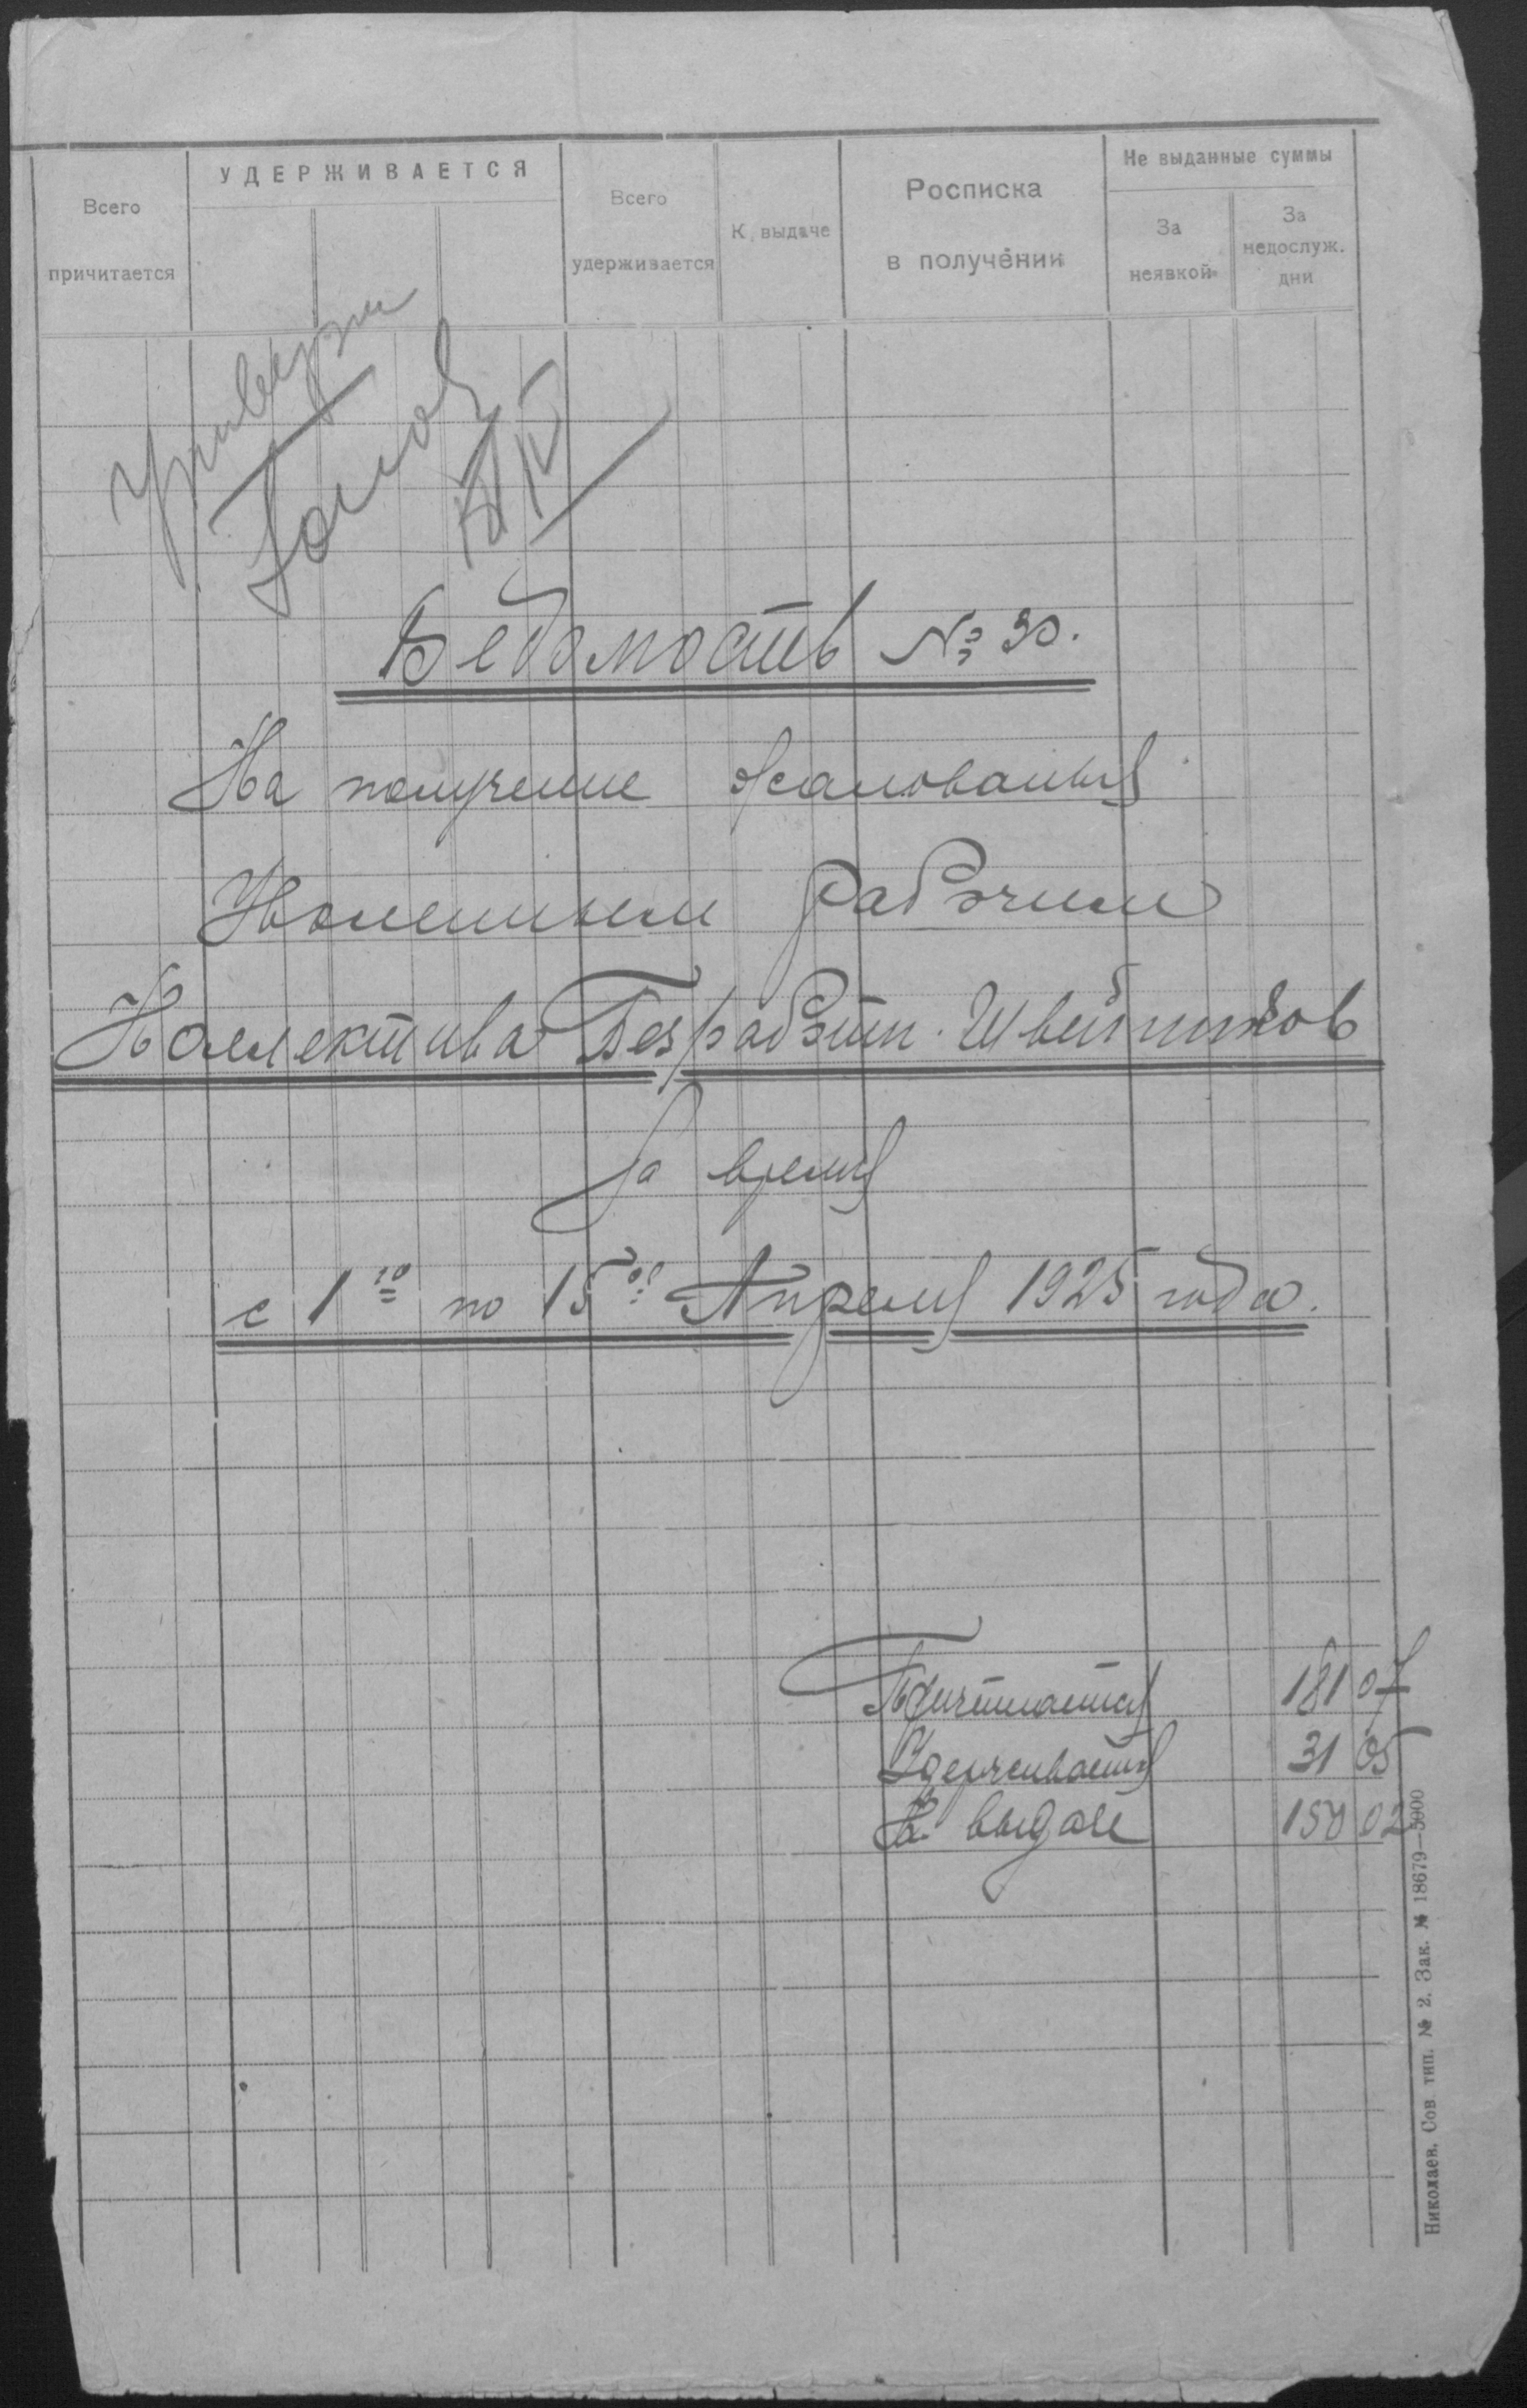 Всего причитается
УДЕРЖИВАЕТСЯ
Всего удерживается
К выдаче
Росписка в получении
Не выданные суммы
За неявкой
За недослуж. дни
Ведомость № 30.
На получение жалованья
Уволенным рабочим
Коллектива Безработн. Швейников
За время
с 1го по 15ое Апреля 1925 года.
Причитается 181 07
Удерживается 31 05
К выдаче 150 02
Николаев. Сов тип. № 2. Зак. № 18679—5000